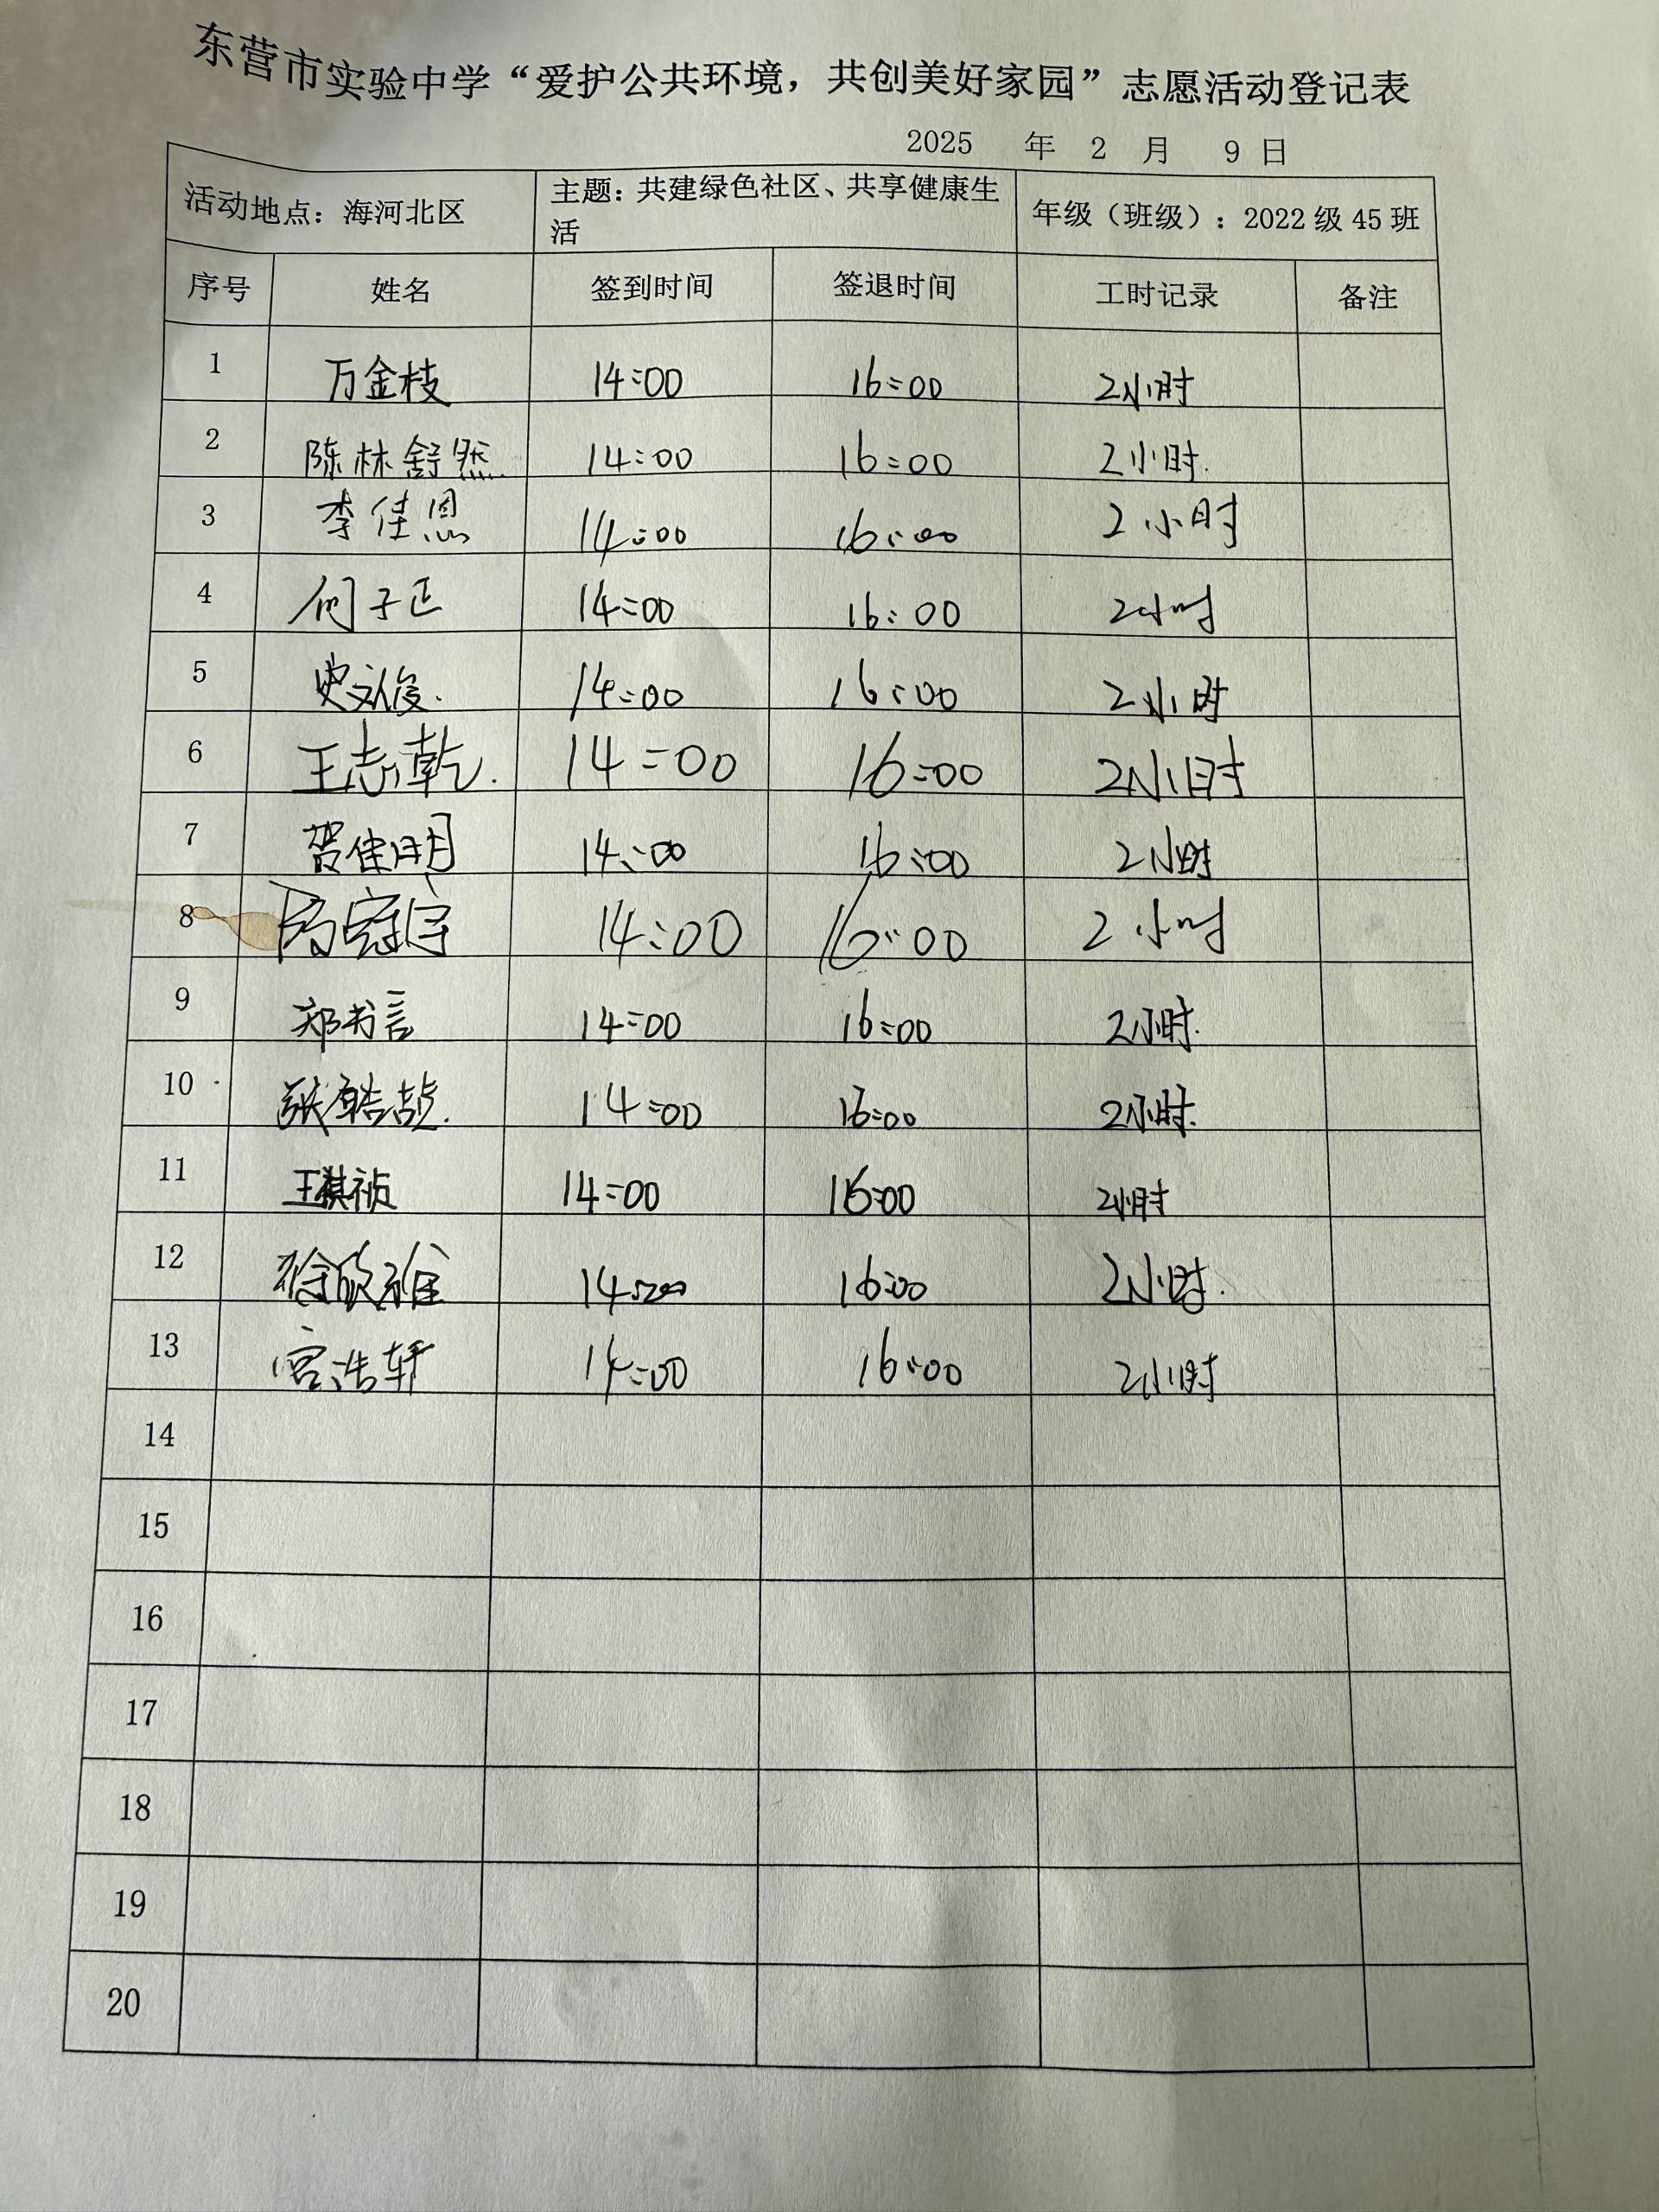 东营市实验中学“爱护公共环境，共创美好家园”志愿活动登记表
2025 年 2 月 9 日
活动地点：海河北区 主题：共建绿色社区、共享健康生活 年级（班级）：2022 级 45 班
序号 姓名 签到时间 签退时间 工时记录 备注
1 万金枝 14:00 16:00 2小时
2 陈林舒然 14:00 16:00 2小时.
3 李佳恩 14:00 16:00 2小时
4 何子正 14:00 16:00 2小时
5 史文俊. 14:00 16:00 2小时
6 王志乾. 14:00 16:00 2小时
7 贺佳明 14:00 16:00 2小时
8 冠宇 14:00 16:00 2小时
9 郑书言 14:00 16:00 2小时.
10 张皓喆. 14:00 16:00 2小时.
11 王祺祯 14:00 16:00 2小时
12 徐欣雅 14:00 16:00 2小时.
13 宫浩轩 14:00 16:00 2小时
14
15
16
17
18
19
20